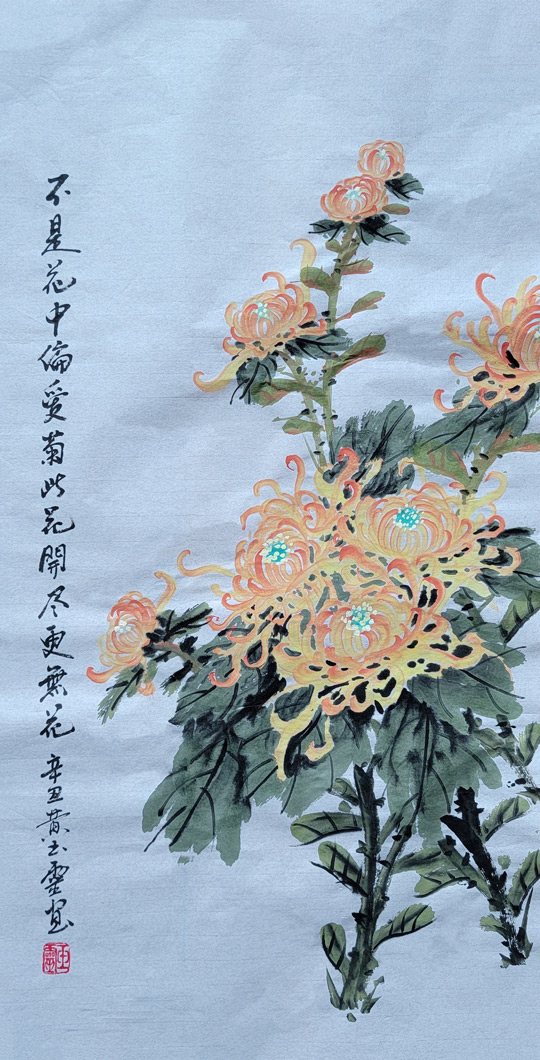 不是花中偏愛菊此花開尽更無花
辛丑黄玉靈